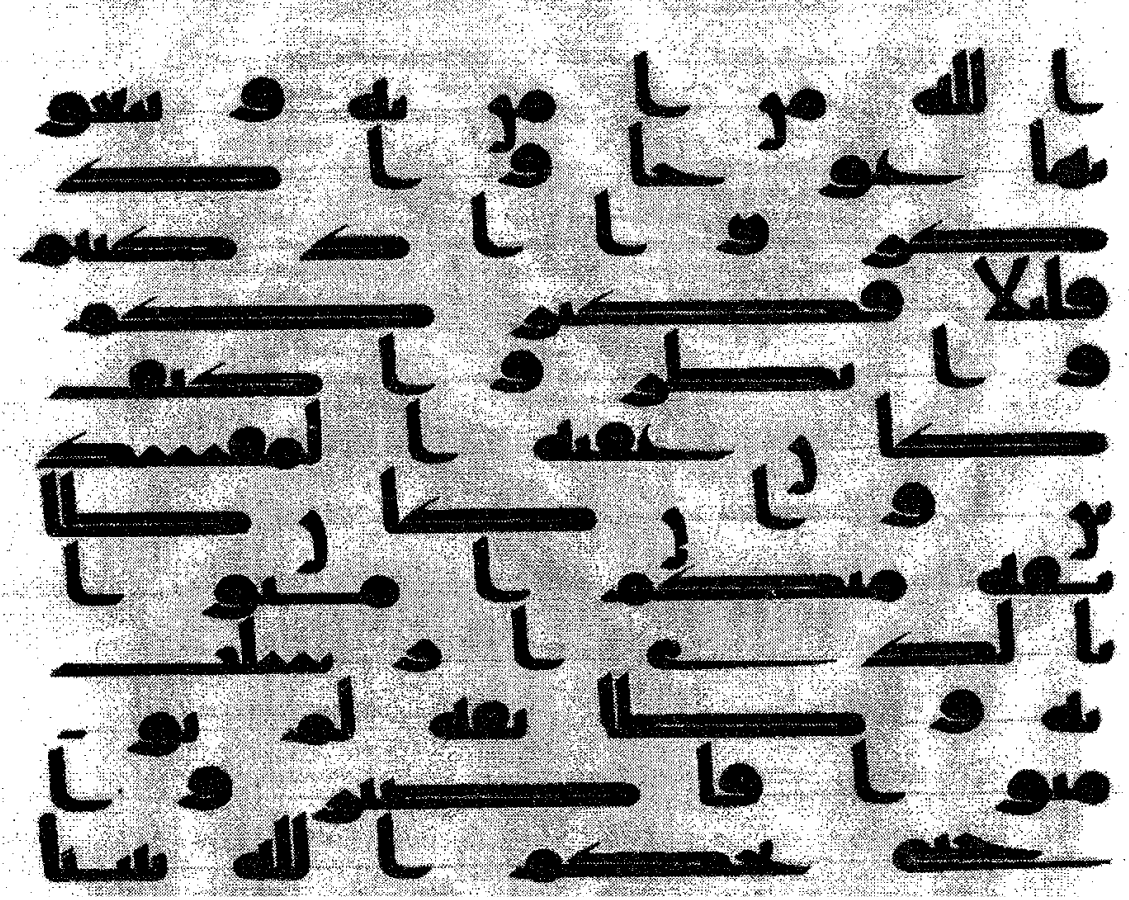 ا لله من ا من به و تبغو
نها عو جا و ا ذ
كر و ا ا ذ كنتم
قليلا فكثركم
و ا نظر و ا كيف
كا ن عقبه ا لمفسد
ين و ا ن كا ن طا
ئفه منكم ا منو ا
با لذ ي ا ر سلت
به و طا ئفه لم يؤ
منو ا فا صبر و ا
حتى يحكم ا لله بيننا